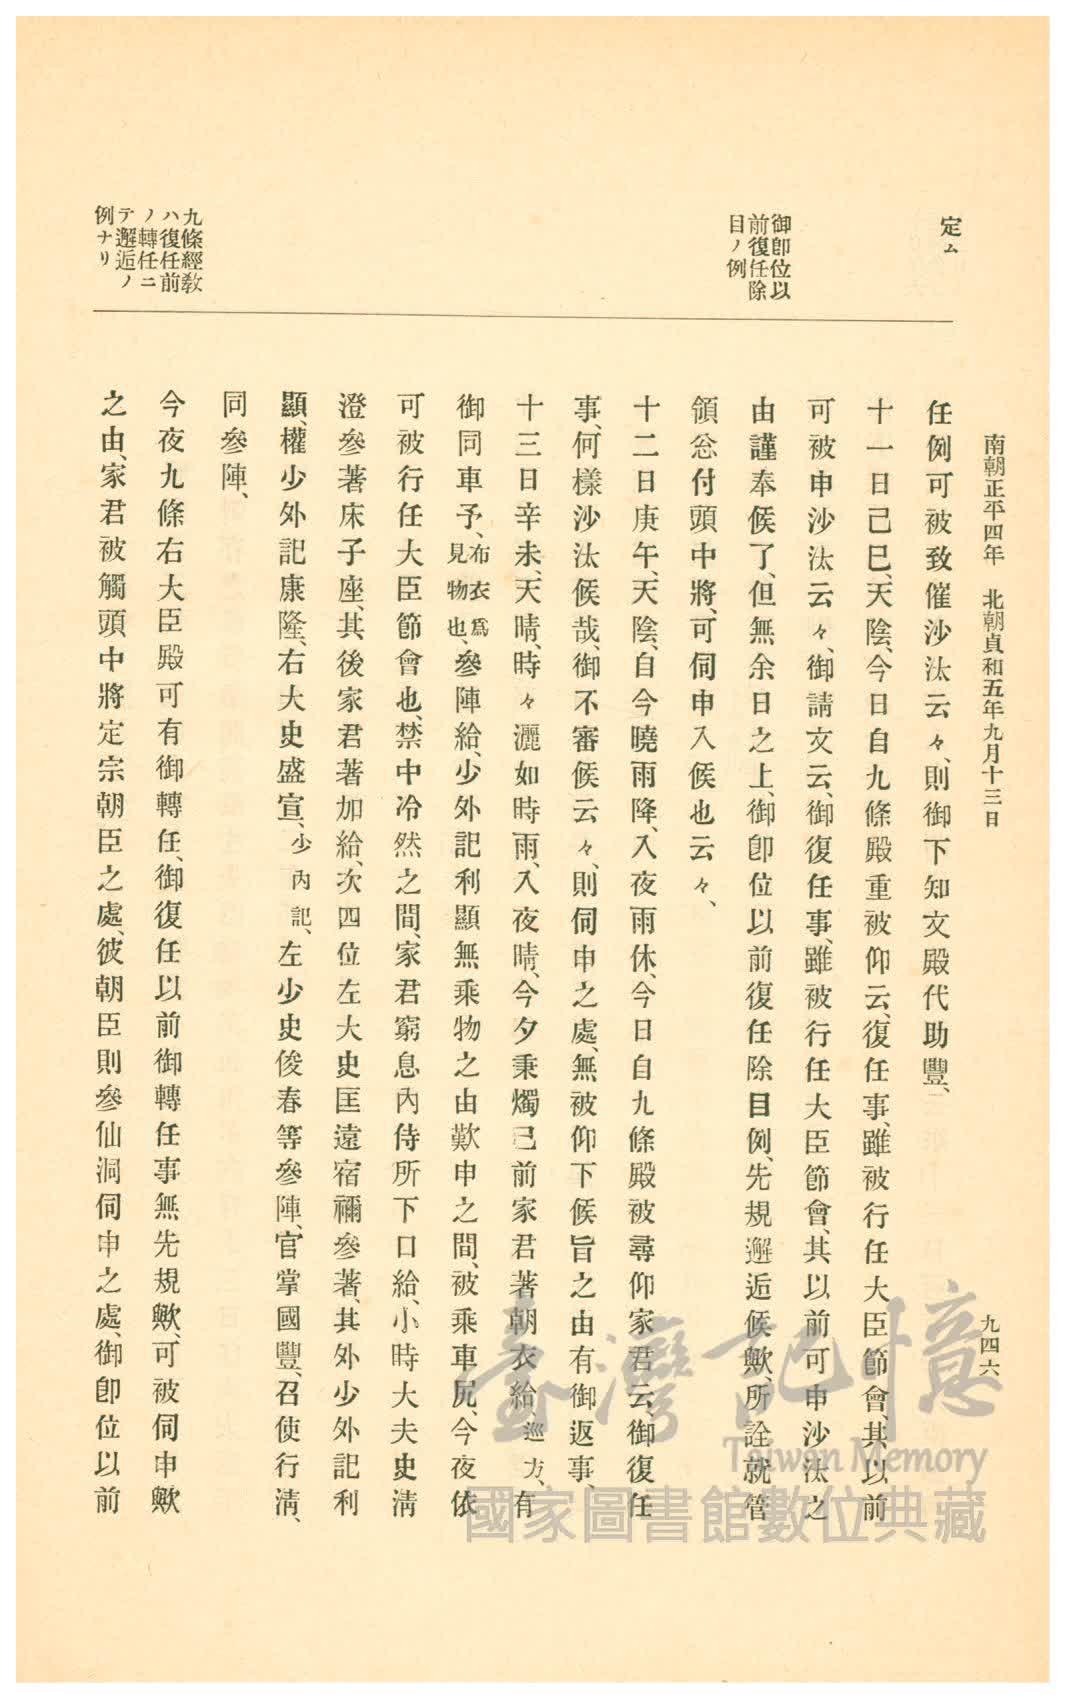 南朝正平四年 北朝貞和五年九月十三日
九四六
定ム
御卽位以
前復任除
目ノ例
九條經敎
ハ復任前
ノ轉任ニ
テ邂逅ノ
例ナリ
任例可被致催沙汰云々、則御下知文殿代助豐、
十一日己巳、天陰、今日自九條殿重被仰云、復任事、雖被行任大臣節會、其以前
可被申沙汰云々、御請文云、御復任事、雖被行任大臣節會、其以前可申沙汰之
由謹奉候了、但無余日之上、御卽位以前復任除目例、先規邂逅候歟、所詮就管
領忩付頭中將、可伺申入候也云々、
十二日庚午、天陰、自今曉雨降、入夜雨休、今日自九條殿被尋仰家君云、御復任
事、何樣沙汰候哉、御不審候云々、則伺申之處、無被仰下候旨之由有御返事、
十三日辛未、天晴、時々灑如時雨、入夜晴、今夕秉燭已前家君著朝衣給、巡方、有
御同車予、布衣爲見物也、參陣給、少外記利顯無乘物之由歎申之間、被乘車尻、今夜依
可被行任大臣節會也、禁中冷然之間、家君窮息內侍所下口給、小時大夫史淸
澄參著床子座、其後家君著加給、次四位左大史匡遠宿禰參著、其外少外記利
顯、權少外記康隆、右大史盛宣、少內記、左少史俊春等參陣、官掌國豐、召使行淸、
同參陣、
今夜九條右大臣殿可有御轉任、御復任以前御轉任事無先規歟、可被伺申歟
之由、家君被觸頭中將定宗朝臣之處、彼朝臣則參仙洞伺申之處、御卽位以前
臺灣記憶
Taiwan Memory
國家圖書館數位典藏